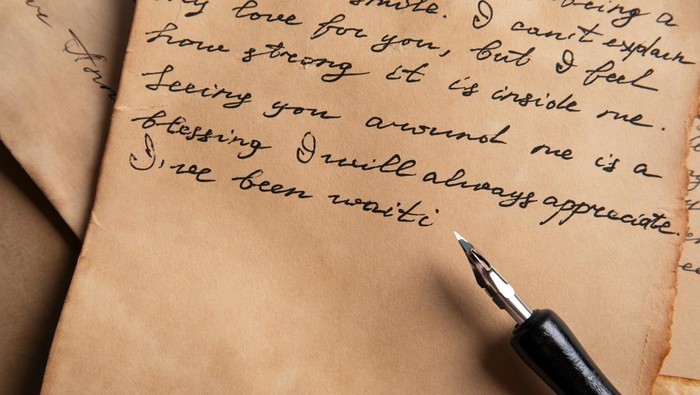 being a
smile. I can't explain
my love for you, but I feel
how strong it is inside me.
Seeing you around me is a
blessing I will always appreciate.
I've been waiti